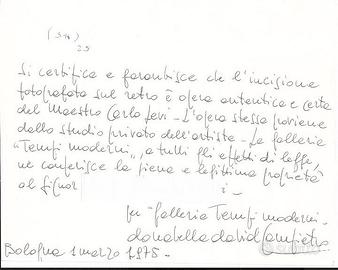 (S.N.)
25
Si certifica e garantisce che l'incisione
fotografata sul retro è opera autentica e certa
del Maestro Carlo Levi - L'opera stessa proviene
dallo studio privato dell'artista - La galleria
"Tempi moderni", a tutti gli effetti di legge,
ne conferisce la piena e legittima proprietà
al signor
per "Galleria Tempi moderni -
donabella david Campietro
Bologna 1 marzo 1978 -